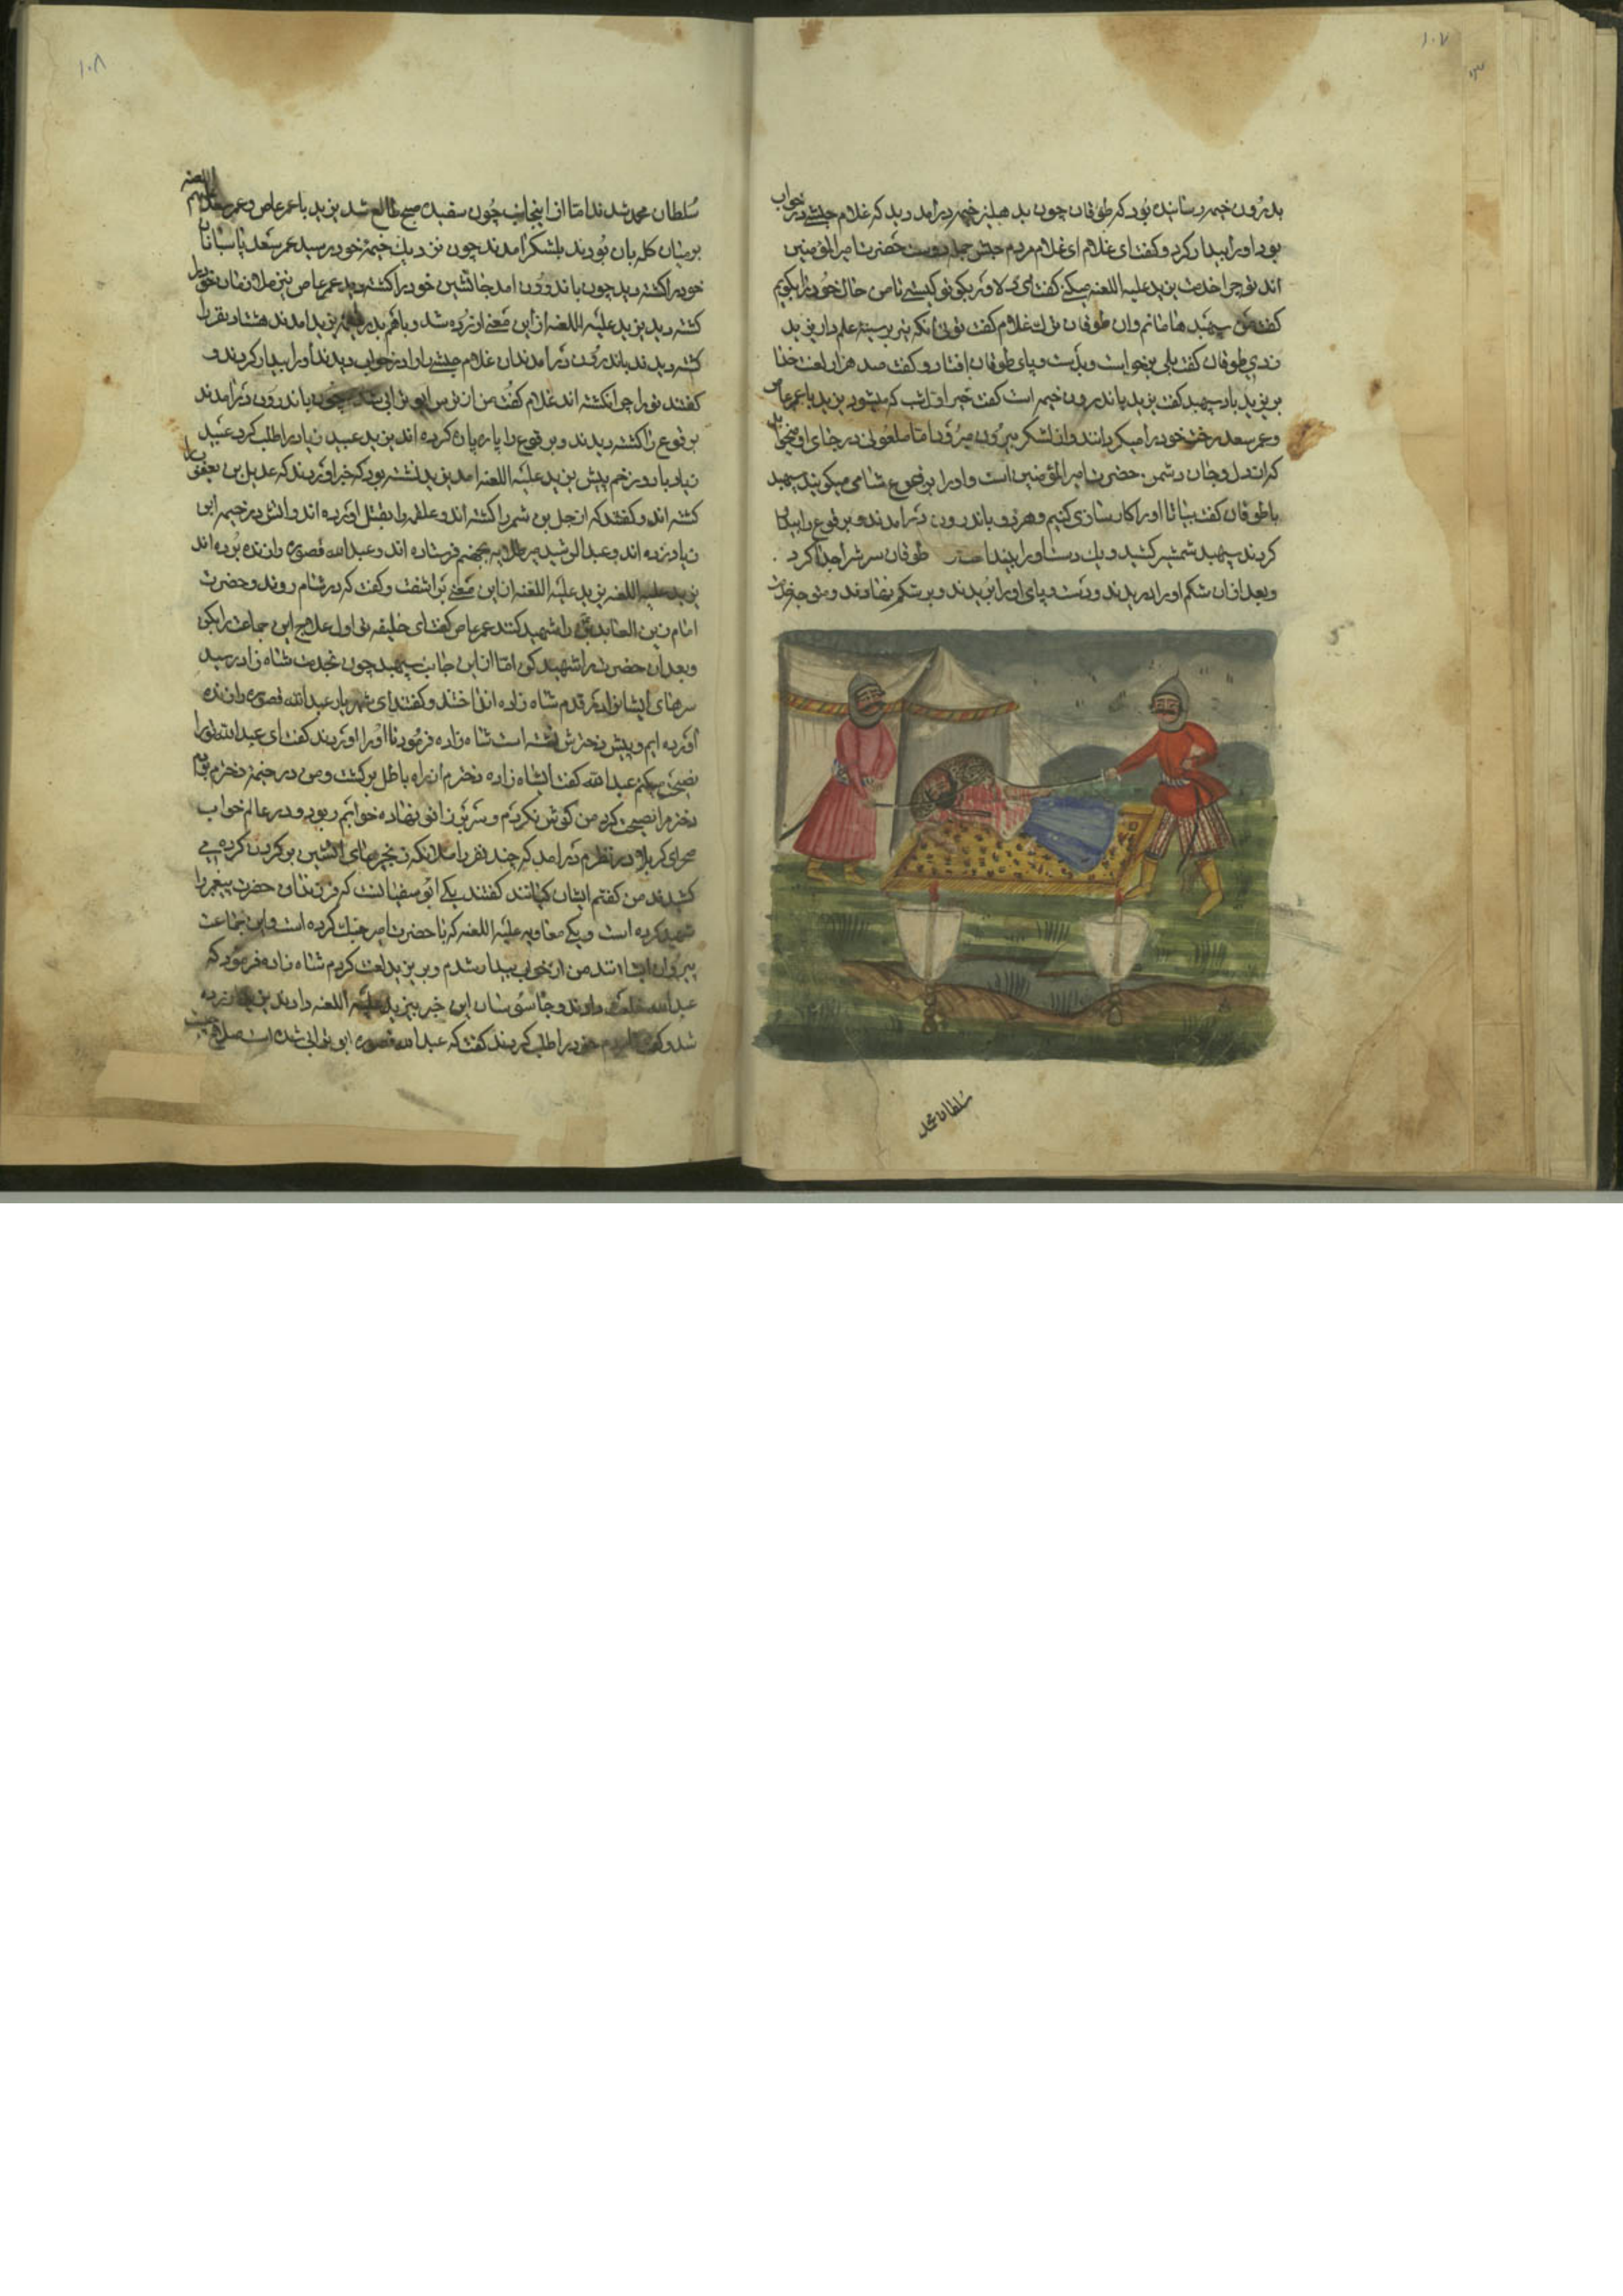 ۱۰۷
بدرون خیمه رسانیده بود که طوفان چون بدهلیز خیمه درامد دید که غلام حبشی در خواب
بود او را بیدار کرد و کفت ای غلام ای غلام مردم حبش جمله دوست حضرت امیرالمؤمنین
اند تو چرا خدمت یزید علیه اللعنه میکنی کفت ای دلاور بکو تو کیستی تا من حال خود را بکویم
کفت من سپهبد وان طوفان ترک غلام کفت توئی انکه تیر بر سینه علمدار یزید
زدی طوفان کفت بلی برخواست و بدست و پای طوفان افتاد و کفت صد هزار لعنت خدا
بر یزید باد سپهبد کفت یزید باندرون خیمه است کفت خیر اول شب که میشود یزید با عمر عاص
و عمر سعد رخت خود را میکردانند و از لشکر بیرون میروند اما ملعونی در جای او میخوابد
که از دل و جان دشمن حضرت امیرالمؤمنین است و او را برقوع شامی میکویند سپهبد
با طوفان کفت بیا تا او را کارسازی کنیم و هر دو باندرون درامدند و برقوع را بیدار
کردند سپهبد شمشیر کشید و یک دست او را بینداخت طوفان سرش را جدا کرد
و بعد از ان شکم او را دریدند و دست و پای او را بریدند و بر شکم نهادند و متوجه خدمت
سلطان محمد
۱۰۸
سلطان محمد شدند اما از اینجانب چون سفیده صبح طالع شد یزید با عمر عاص و عمر سعد علیهم اللعنه
در میان کله بان بودند بلشکر امدند چون نزدیک خیمه خود رسید عمر سعد پاسبانان
خود را کشته دید چون باندرون امد جانشین خود را کشته دید عمر عاص نیز ملازمان خود را
کشته دید یزید علیه اللعنه از این معنی ازرده شد و باهم بدر خیمه یزید امدند هشتاد نفر را
کشته دیدند باندرون درامدند ان غلام حبشی را در خواب دیدند او را بیدار کردند و
کفتند تو را چرا نکشته اند غلام کفت من از ترس ابوترابی شدم چون باندرون درامدند
برقوع را کشته دیدند و برقوع را پاره پاره کرده اند یزید عبید زیاد را طلب کرد عبید
زیاد با دو زخم پیش یزید علیه اللعنه امد یزید نشسته بود که خبر اوردند که عدیل بن یعقوب را
کشته اند و کفتند که ازجل بن شمر را کشته اند و علقمه را بقتل اورده اند و اتش در خیمه ابن
زیاد زده اند و عبدالرشید میر طلایه بجهنم فرستاده اند و عبدالله قصوره را زنده برده اند
یزید علیه اللعنه یزید علیه اللعنه از این معنی براشفت و کفت که در شام روند و حضرت
امام زین العابدین را شهید کنند عمر عاص کفت ای خلیفه تو اول علاج این جماعت را بکن
و بعد ان حضرت را شهید کن اما از این جانب سپهبد چون بخدمت شاه زاده رسید
سرهای ایشان را در قدم شاه زاده انداختند و کفتند ای شهریار عبدالله قصوره را زنده
اورده ایم و پیش دخترش نشسته است شاه زاده فرمود تا او را اوردند کفت ای عبدالله تو را
نصیحت میکنم عبدالله کفت ای شاه زاده دخترم از راه باطل برکشت و من در خیمه دخترم بودم
دخترم را نصیحت کرد من کوش نکردم و سر بزانو نهاده خوابم ربود و در عالم خواب
صحرای کربلا در نظرم درامد که چند نفر را ملائکه زنجیرهای اتشین بر کردن کرده می
کشیدند من کفتم ایشان کیانند کفتند یکی ابوسفیانست که فرزندان حضرت پیغمبر را
شهید کرده است و یکی معاویه علیه اللعنه که با حضرت امیر جنک کرده است و این جماعت
پیروان ایشانند من از خواب بیدار شدم و بر یزید لعنت کردم شاه زاده فرمود که
عبدالله خلعت دادند و جاسوسان این خبر بیزید علیه اللعنه دادند یزید ازرده
شد و کفت مردم خود را طلب کردند کفت که عبدالله قصوره ابوترابی شده است صلاح چیست